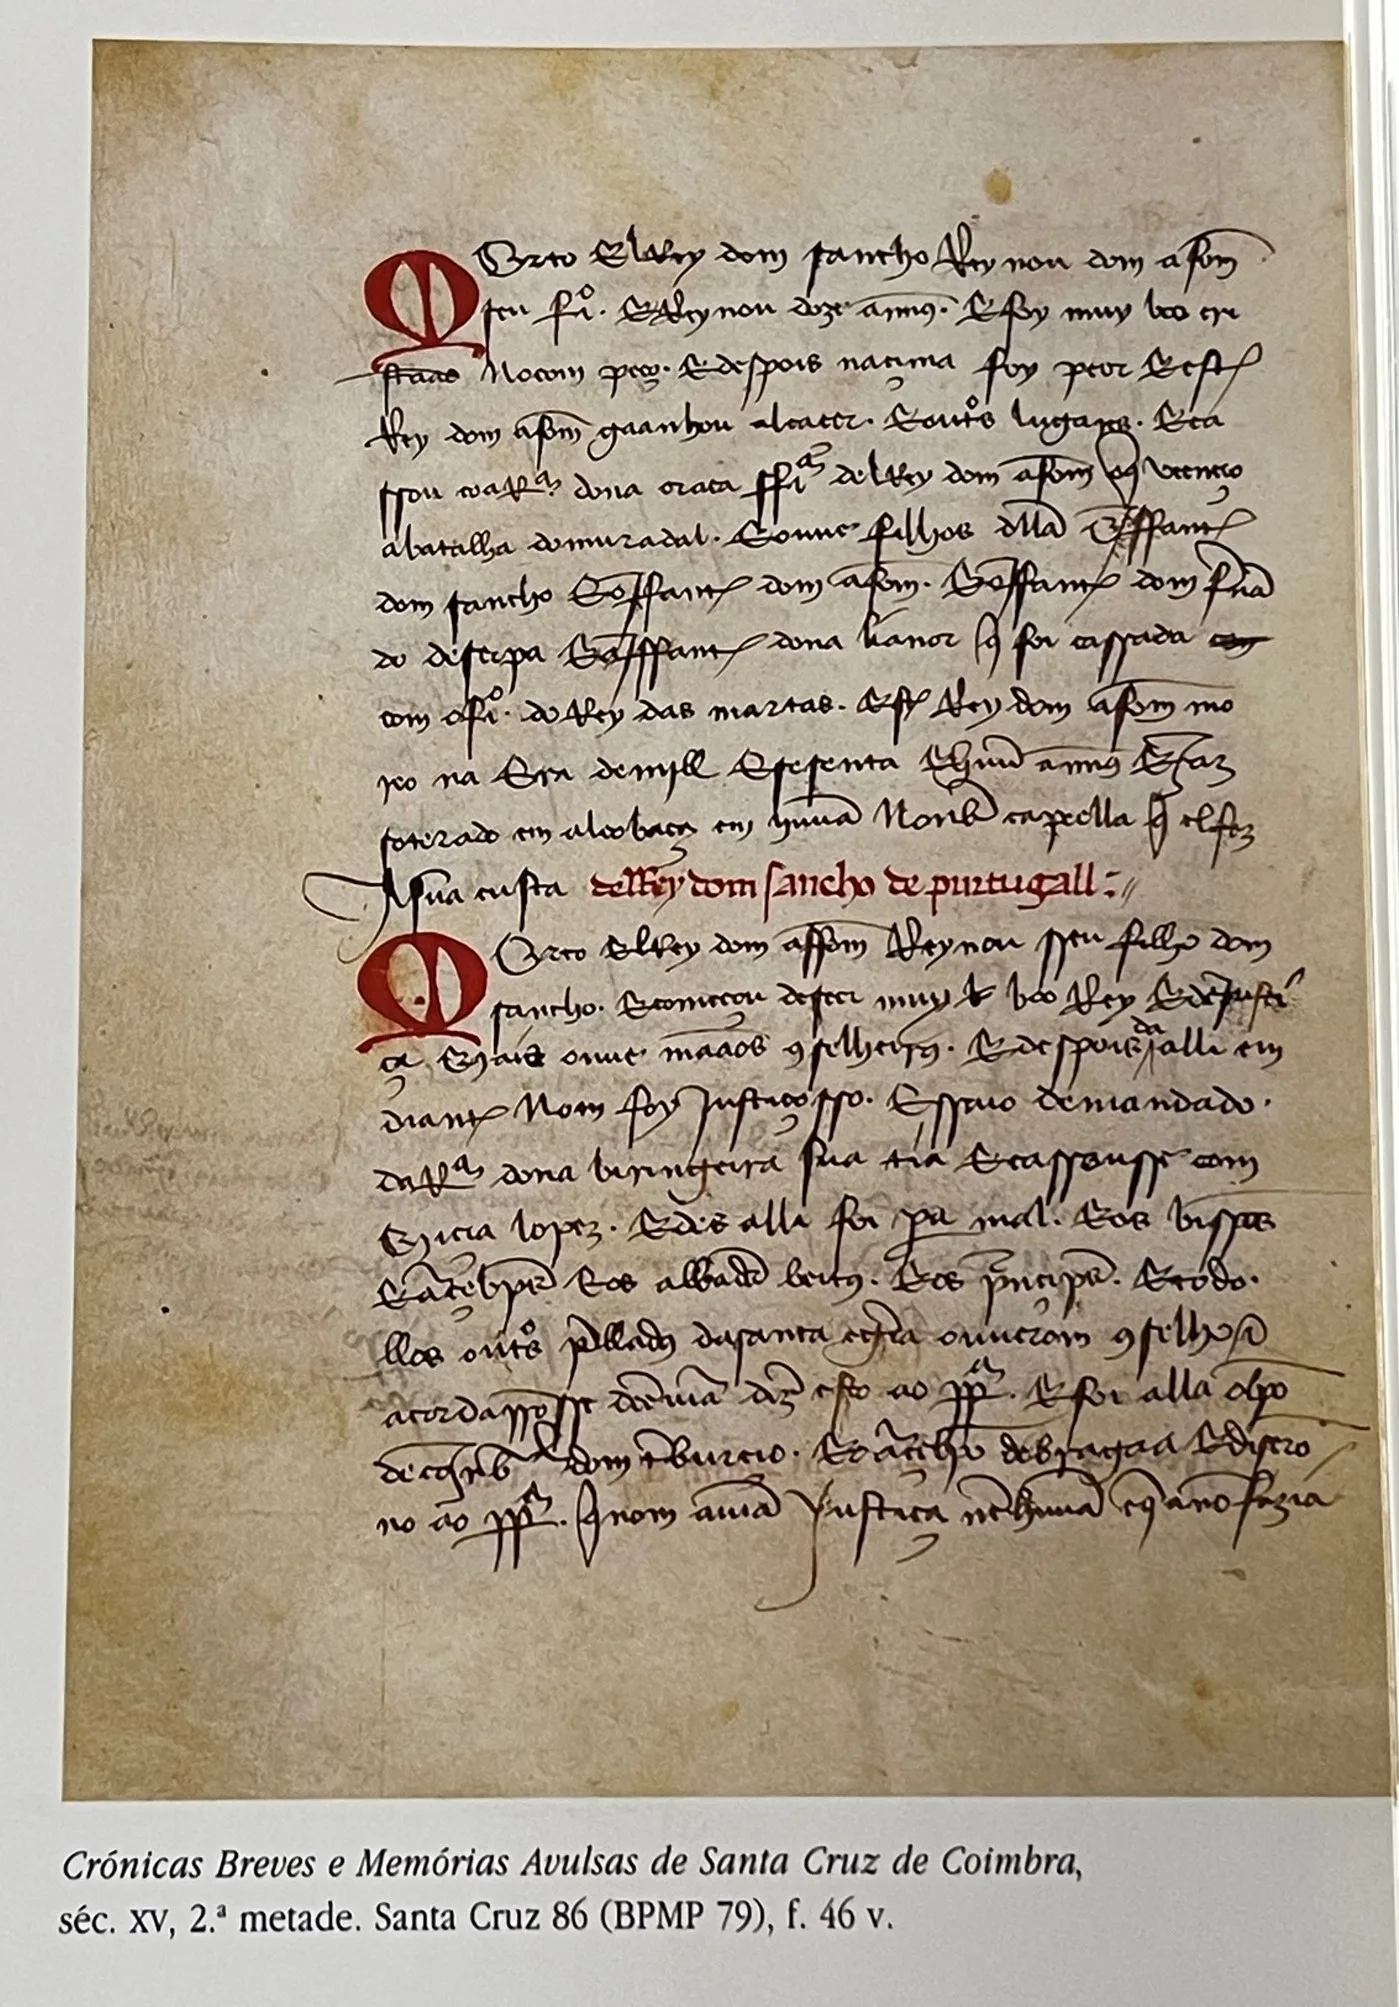 MOrto ElRey dom sancho Reynou dom afom
seu fio. EReynou doze annus. Efoy muy boo cri
staao Nocom peço. Edespois nacima foy peor Este
Rey dom afom gaanhou alcacer. Eoutos lugares. Eca
ssou coaRa dona oraca ffia delRey dom afom q venceo
abatalha domuradal. Eouue filhos dlla Iffante
dom sancho Eoiffante dom afom. Eoiffante dom fnã
do deserpa Eaiffante dona lianor q foi cassada
com ofio. do Rey das martas. Este Rey dom afom mo
reo na Era demjll Esesenta Ehuu annus Ejaz
soterado em alcobaça em huuã Nobre capella q elfez
Asua custa delRey dom sancho de purtugall
MOrto ElRey dom affom Reynou sseu filho dom
sancho. Ecomeçou deseer muy boo Rey Edejusti
ça Mais ouue maaos 9selheiros. Edespois da alli em
diante Nom foy Justiçosso. Essaio demandado.
daRa dona biringeira sua tia Ecassousse com
Micia lopez. Edes alli foi pa mal. Eos bispos
Earcebpos Eos abbades beitos. Eos principes. Etodo.
llos outos prellados dasanta egreia ouuerom 9selho
acordarõsse deenuiã dizer esto ao ppa. Efoi alla obpo
decoinbra dom tiburcio. Eoarcebpo debragaa Edisero
no ao ppa. q nom auiã Justiça nehuuã eq anõ fazia
Crónicas Breves e Memórias Avulsas de Santa Cruz de Coimbra,
séc. XV, 2.ª metade. Santa Cruz 86 (BPMP 79), f. 46 v.